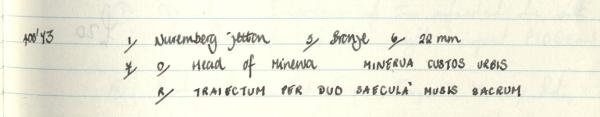 400'43 1/ Nuremberg jetton 5/ Bronze 6/ 22 mm
7/ O/ Head of Minerva MINERVA CUSTOS URBIS
R/ TRAIECTUM PER DUO SAECULA MUSIS SACRUM